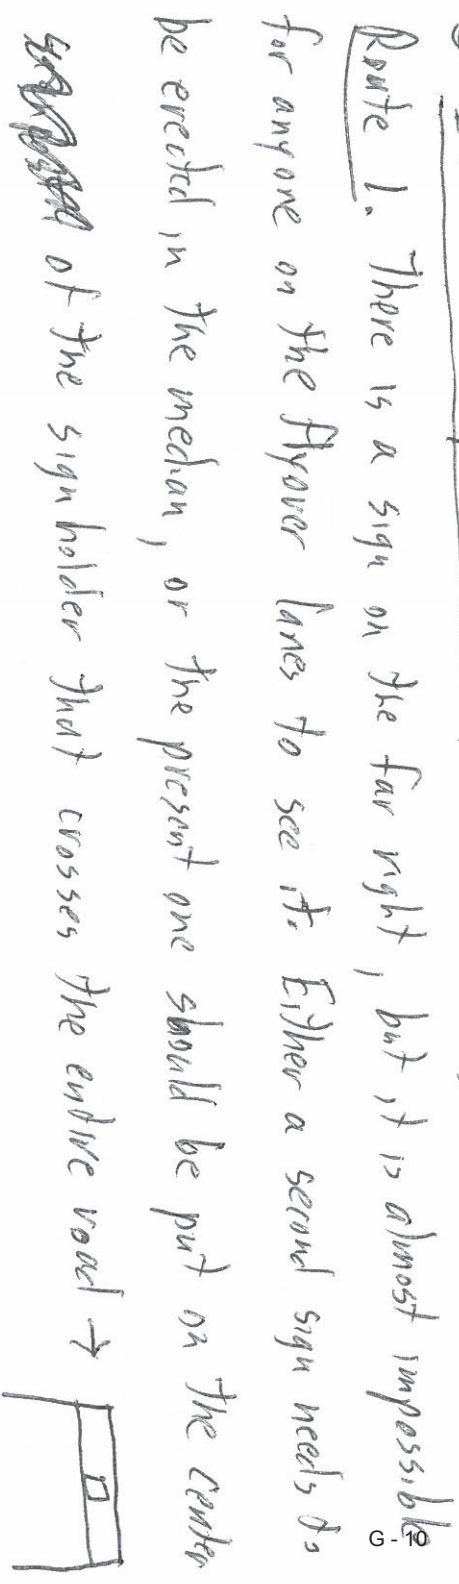 Route 1. There is a sign on the far right, but it is almost impossible
for anyone on the flyover lanes to see it. Either a second sign needs to
be erected in the median, or the present one should be put on the center
of the sign holder that crosses the entire road →
G - 10